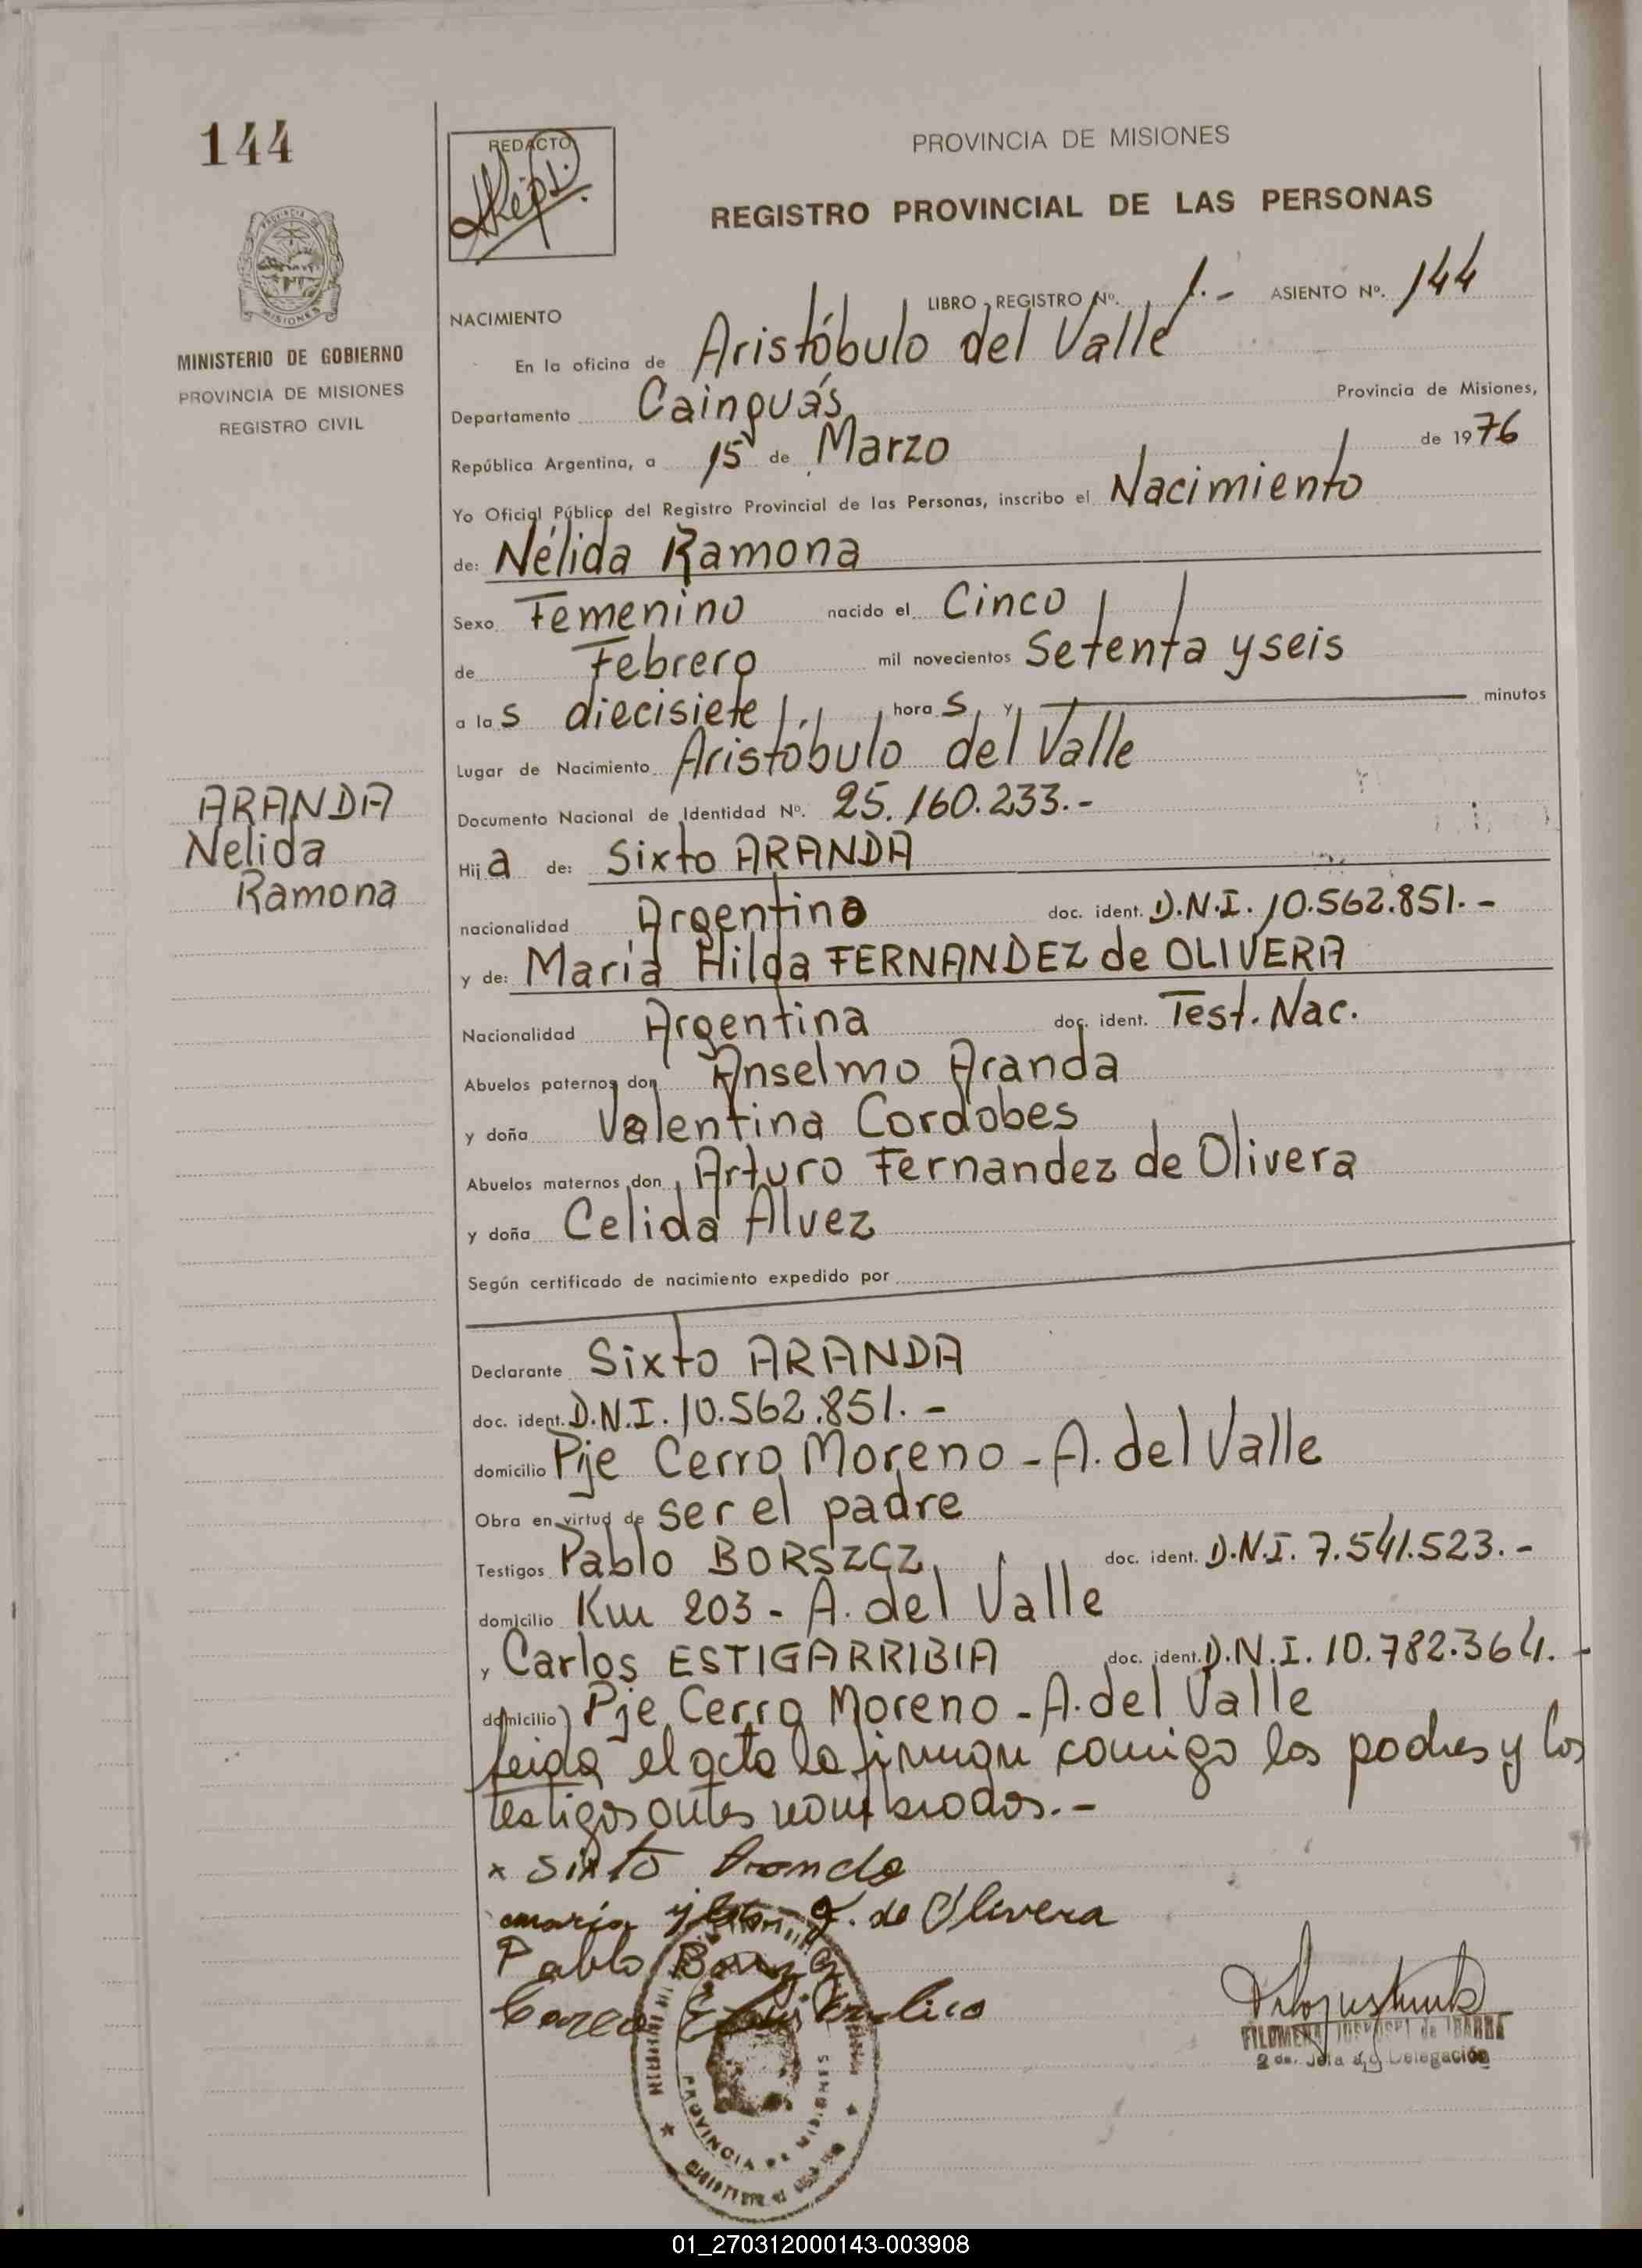 144
REDACTO
PROVINCIA DE MISIONES
REGISTRO PROVINCIAL DE LAS PERSONAS
MISIONES
MINISTERIO DE GOBIERNO
PROVINCIA DE MISIONES
REGISTRO CIVIL
LIBRO - REGISTRO Nº. 1.- ASIENTO Nº. 144
NACIMIENTO
En la oficina de Aristóbulo del Valle
Departamento Cainguás Provincia de Misiones,
República Argentina, a 15 de Marzo de 1976
Yo Oficial Público del Registro Provincial de las Personas, inscribo el Nacimiento
de: Nélida Ramona
Sexo Femenino nacido el Cinco
de Febrero mil novecientos Setenta y seis
a las diecisiete horas y minutos
Lugar de Nacimiento Aristóbulo del Valle
Documento Nacional de Identidad Nº. 25.160.233.-
ARANDA
Nelida
Ramona
Hija de: Sixto ARANDA
nacionalidad Argentino doc. ident. D.N.I. 10.562.851.-
y de: María Hilda FERNANDEZ de OLIVERA
Nacionalidad Argentina doc. ident. Test. Nac.
Abuelos paternos don Anselmo Aranda
y doña Valentina Cordobes
Abuelos maternos don Arturo Fernandez de Olivera
y doña Celida Alvez
Según certificado de nacimiento expedido por
Declarante Sixto ARANDA
doc. ident. D.N.I. 10.562.851.-
domicilio Pje Cerro Moreno - A. del Valle
Obra en virtud de ser el padre
Testigos Pablo BORSZCZ doc. ident. D.N.I. 7.541.523.-
domicilio Km 203 - A. del Valle
y Carlos ESTIGARRIBIA doc. ident. D.N.I. 10.782.364.-
domicilio Pje Cerro Moreno - A. del Valle
Leida el acta la firman comigo los padres y los
testigos antes nombrados.-
x Sixto Aranda
maria F. de Olivera
Pablo
PROVINCIA DE MISIONES
FILOMENA de IBARRA
2da. Jefa de Delegación
01_270312000143-003908